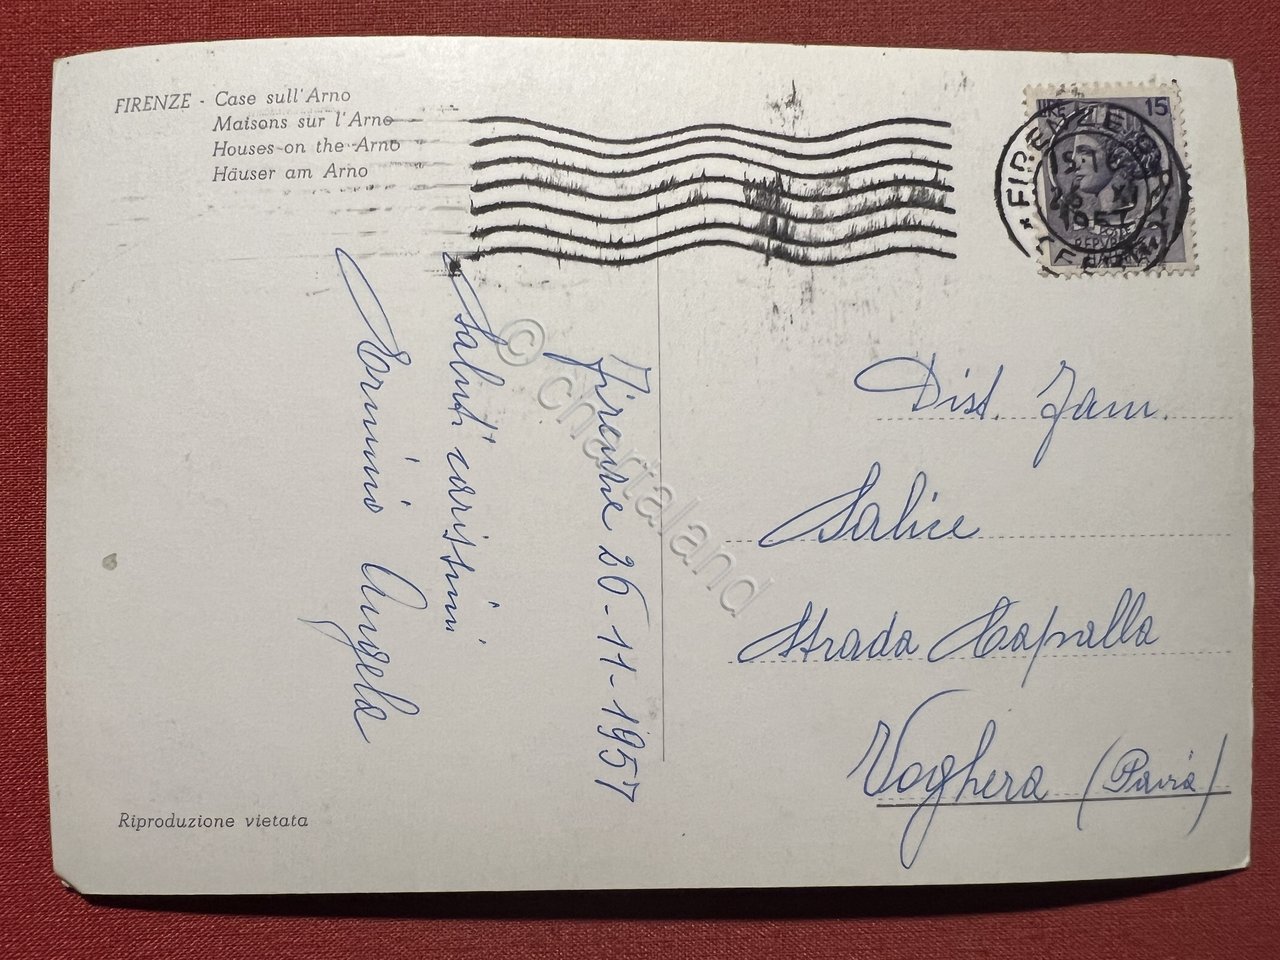 FIRENZE - Case sull'Arno
Maisons sur l'Arno
Houses on the Arno
Häuser am Arno
LIRE 15
* FIRENZE
26 XI
1957
POSTE
Firenze 26-11-1957
Saluti carissimi
Erminio Angela
Dist. Fam.
Salice
Strada Capalla
Voghera (Pavia)
Riproduzione vietata
© chartaland